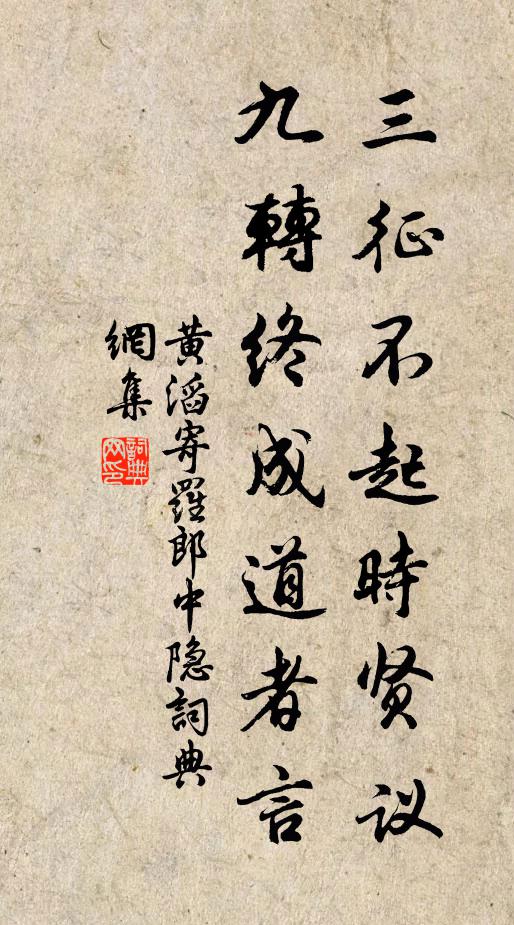 三征不起時贤议
九轉終成道者言
黄滔寄羅郎中隐詞典
網集
詞典网印